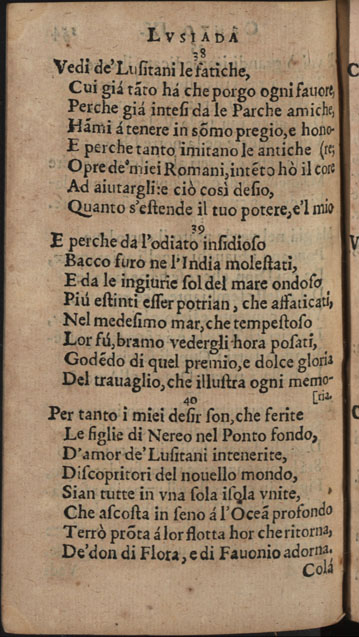 LVSIADA
38
Vedi de' Lusitani le fatiche,
Cui giá tãto há che porgo ogni fauore,
Perche giá intesi da le Parche amiche,
Hãmi á tenere in sõmo pregio, e hono-
E perche tanto imitano le antiche (re;
Opre de' miei Romani, intẽto hò il core
Ad aiutargli: e ciò così desio,
Quanto s'estende il tuo potere, e'l mio
39
E perche da l'odiato insidioso
Bacco furo ne l'India molestati,
E da le ingiurie sol del mare ondoso
Piú estinti esser potrian, che affaticati,
Nel medesimo mar, che tempestoso
Lor fú, bramo vedergli hora posati,
Godẽdo di quel premio, e dolce gloria
Del trauaglio, che illustra ogni memo-
40 [ria.
Per tanto i miei desir son, che ferite
Le figlie di Nereo nel Ponto fondo,
D'amor de' Lusitani intenerite,
Discopritori del nouello mondo,
Sian tutte in vna sola isola vnite,
Che ascosta in seno á l'Oceã profondo
Terrò prõta á lor flotta hor che ritorna,
De' don di Flora, e di Fauonio adorna.
Colá